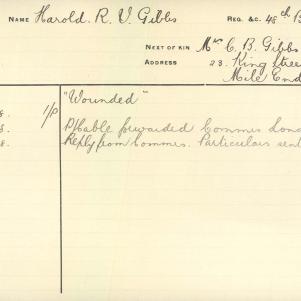 NAME Harold. R. V. Gibbs REG. &C. 48th B
NEXT OF KIN Mrs C. B. Gibbs
ADDRESS 23. King Stree
Mile End
8. 1/P "Wounded"
8. P/Cable forwarded Commes Lond
8. Reply from Commes. Particulars sent